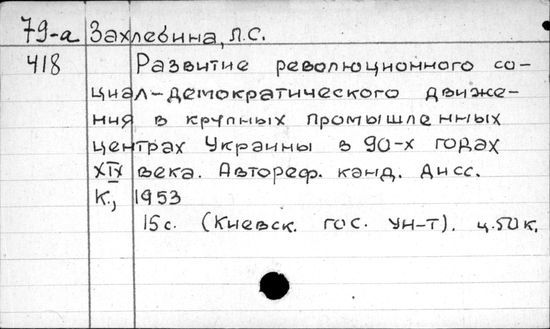 79-а Захлебина, Л.С.
418 Развитие революционного со-
циал-демократического движе-
ния в крупных промышленных
центрах Украины в 90-х годах
XIX века. Автореф. канд. дисс.
К., 1953
15 с. (Киевск. гос. ун-т). ц.50 к.